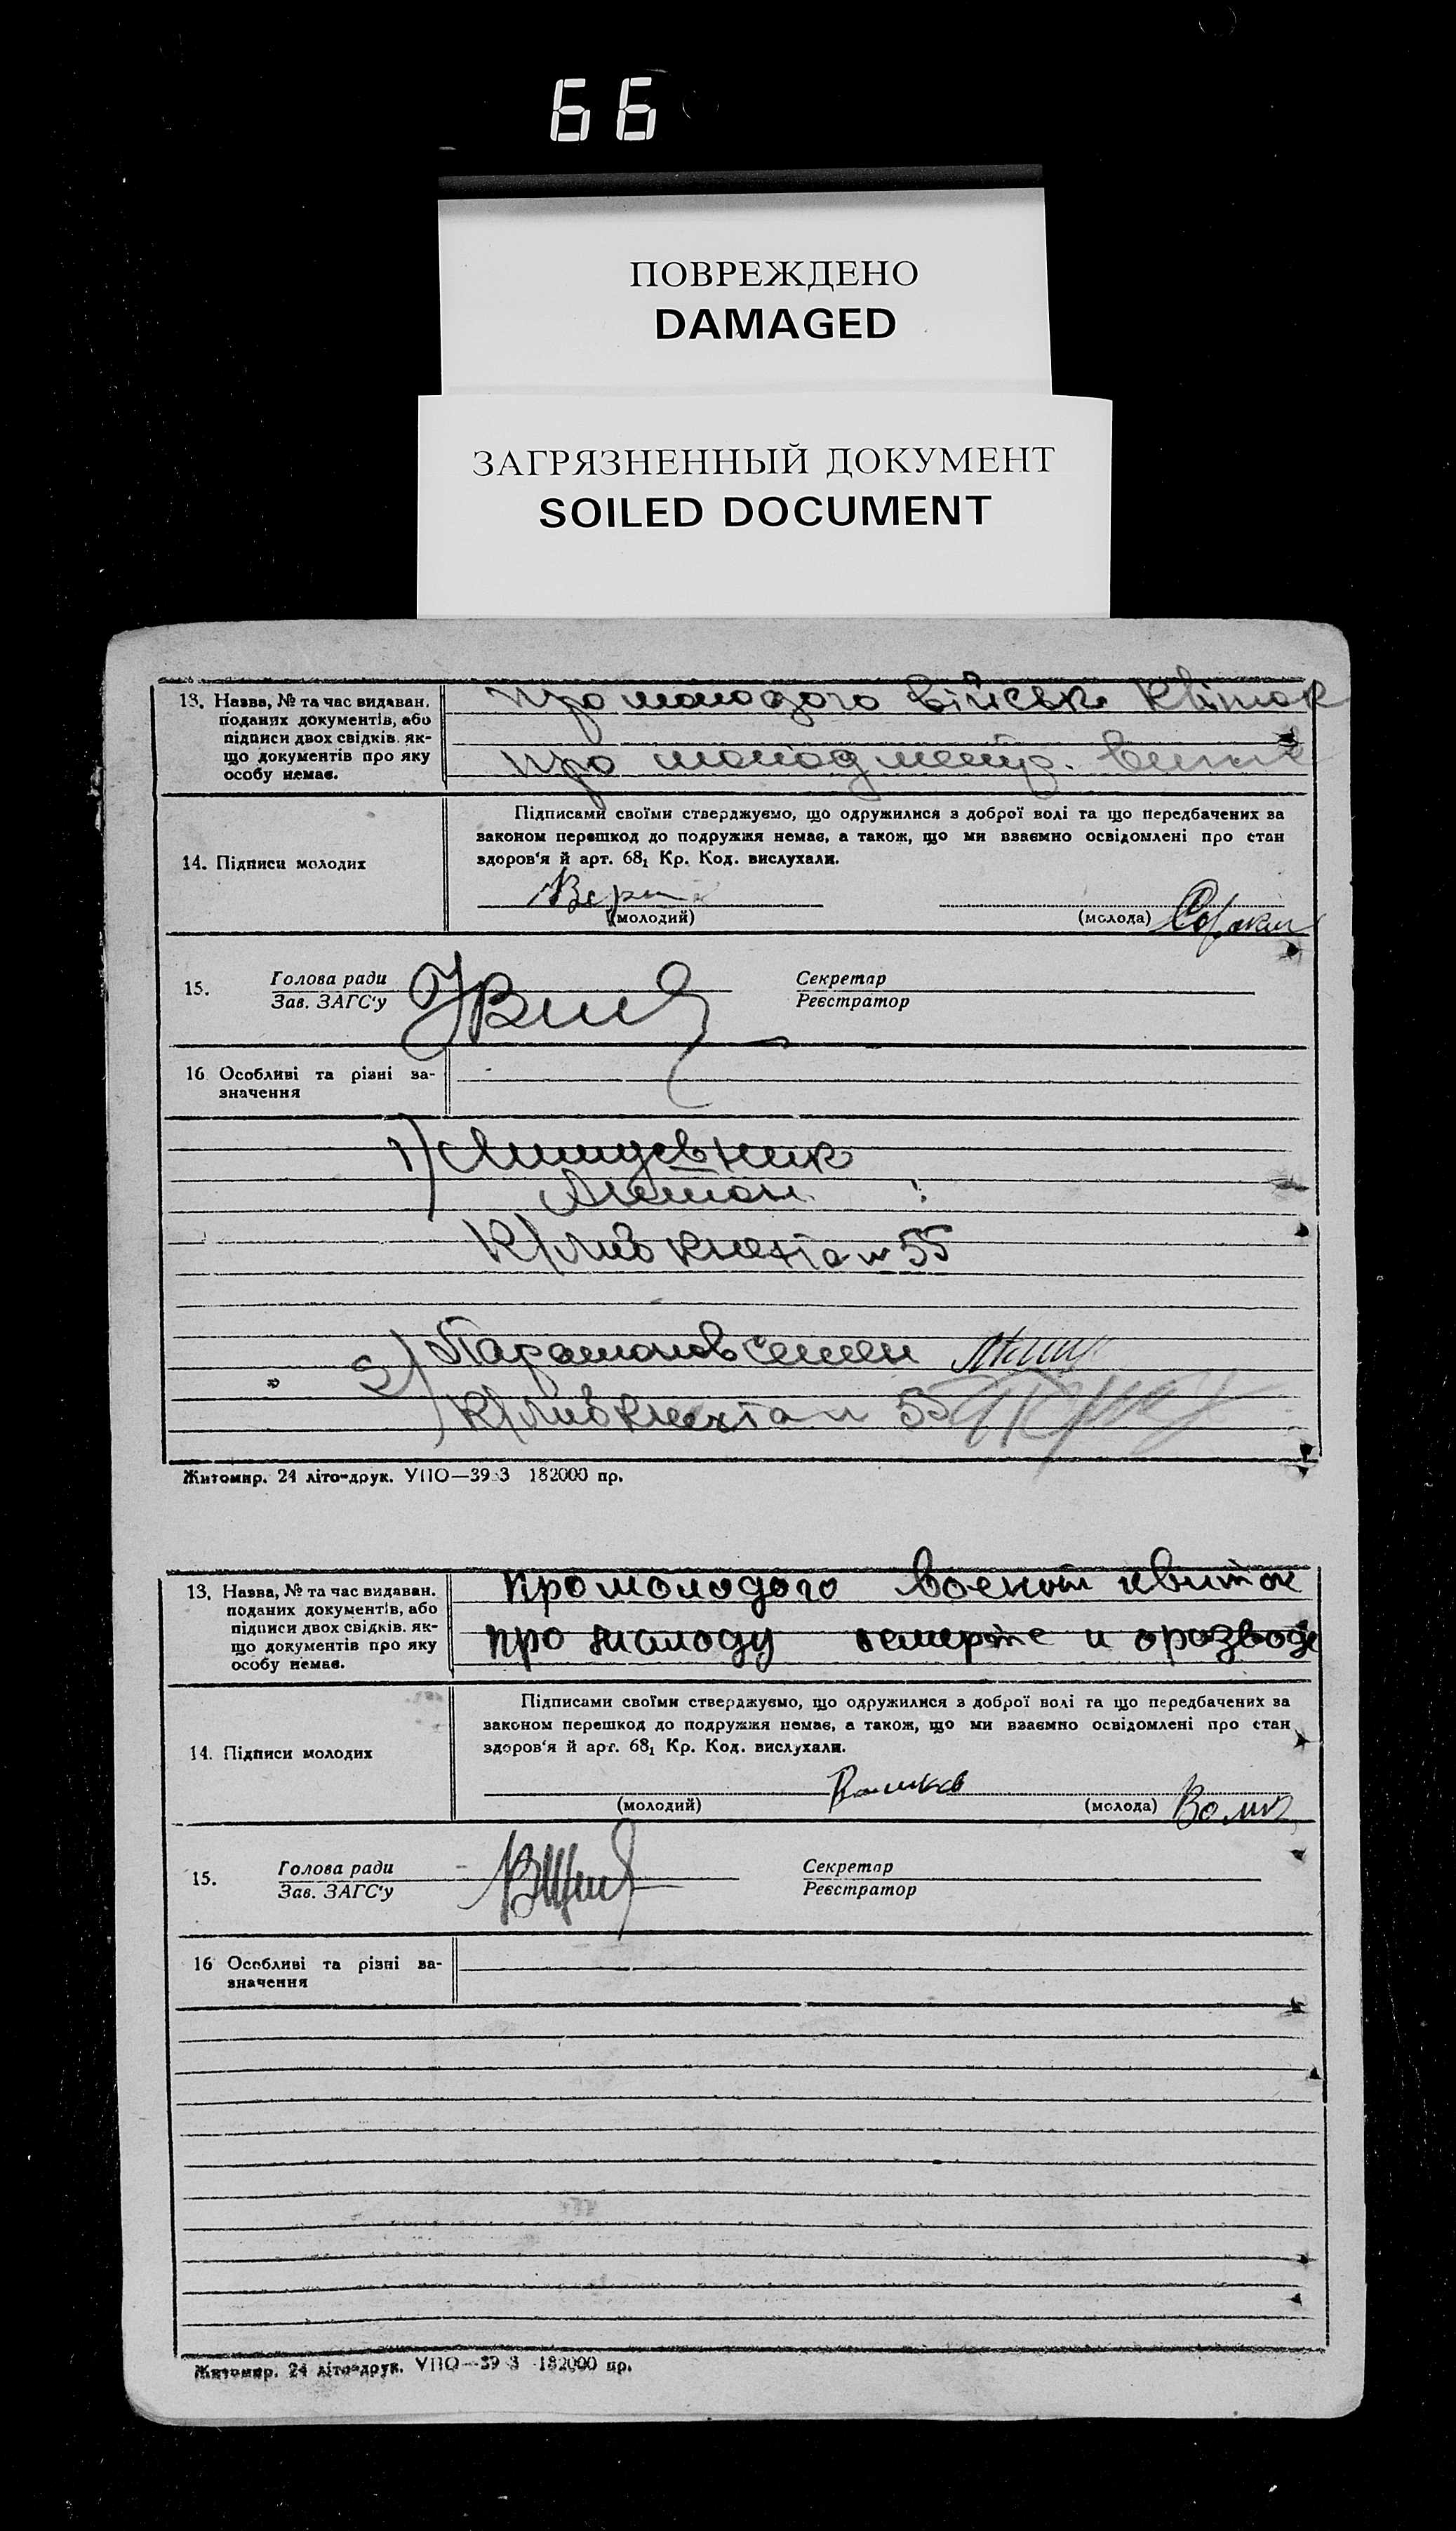 66
ПОВРЕЖДЕНО
DAMAGED
ЗАГРЯЗНЕННЫЙ ДОКУМЕНТ
SOILED DOCUMENT
13. Назва, № та час видаван.
поданих документів, або
підписи двох свідків. як-
що документів про яку
особу немає.
Про молодого військ квіток
про молод метр.
Підписами своїми стверджуємо, що одружилися з доброї волі та що передбачених за
законом перешкод до подружжя немає, а також, що ми взаємно освідомлені про стан
здоров'я й арт. 68₁ Кр. Код. вислухали.
14. Підписи молодих
(молодий)
(молода)
15.
Голова ради
Зав. ЗАГС'у
Секретар
Реєстратор
16 Особливі та різні за-
значення
1)
К/Либкнехта № 55
2) Парамонов Семен
К/Либкнехта № 55
Житомир. 24 літо-друк. УПО—39 3 182000 пр.
13. Назва, № та час видаван.
поданих документів, або
підписи двох свідків. як-
що документів про яку
особу немає.
про молодого военый квиток
про молоду о розводе
Підписами своїми стверджуємо, що одружилися з доброї волі та що передбачених за
законом перешкод до подружжя немає, а також, що ми взаємно освідомлені про стан
здоров'я й арт. 68₁ Кр. Код. вислухали.
14. Підписи молодих
(молодий)
(молода)
15.
Голова ради
Зав. ЗАГС'у
Секретар
Реєстратор
16 Особливі та різні за-
значення
Житомир. 24 літо-друк. УПО—39 3 182000 пр.